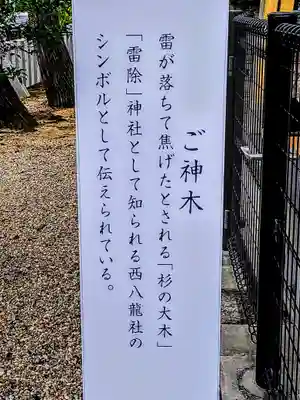 ご神木
雷が落ちて焦げたとされる「杉の大木」
「雷除」神社として知られる西八龍社の
シンボルとして伝えられている。